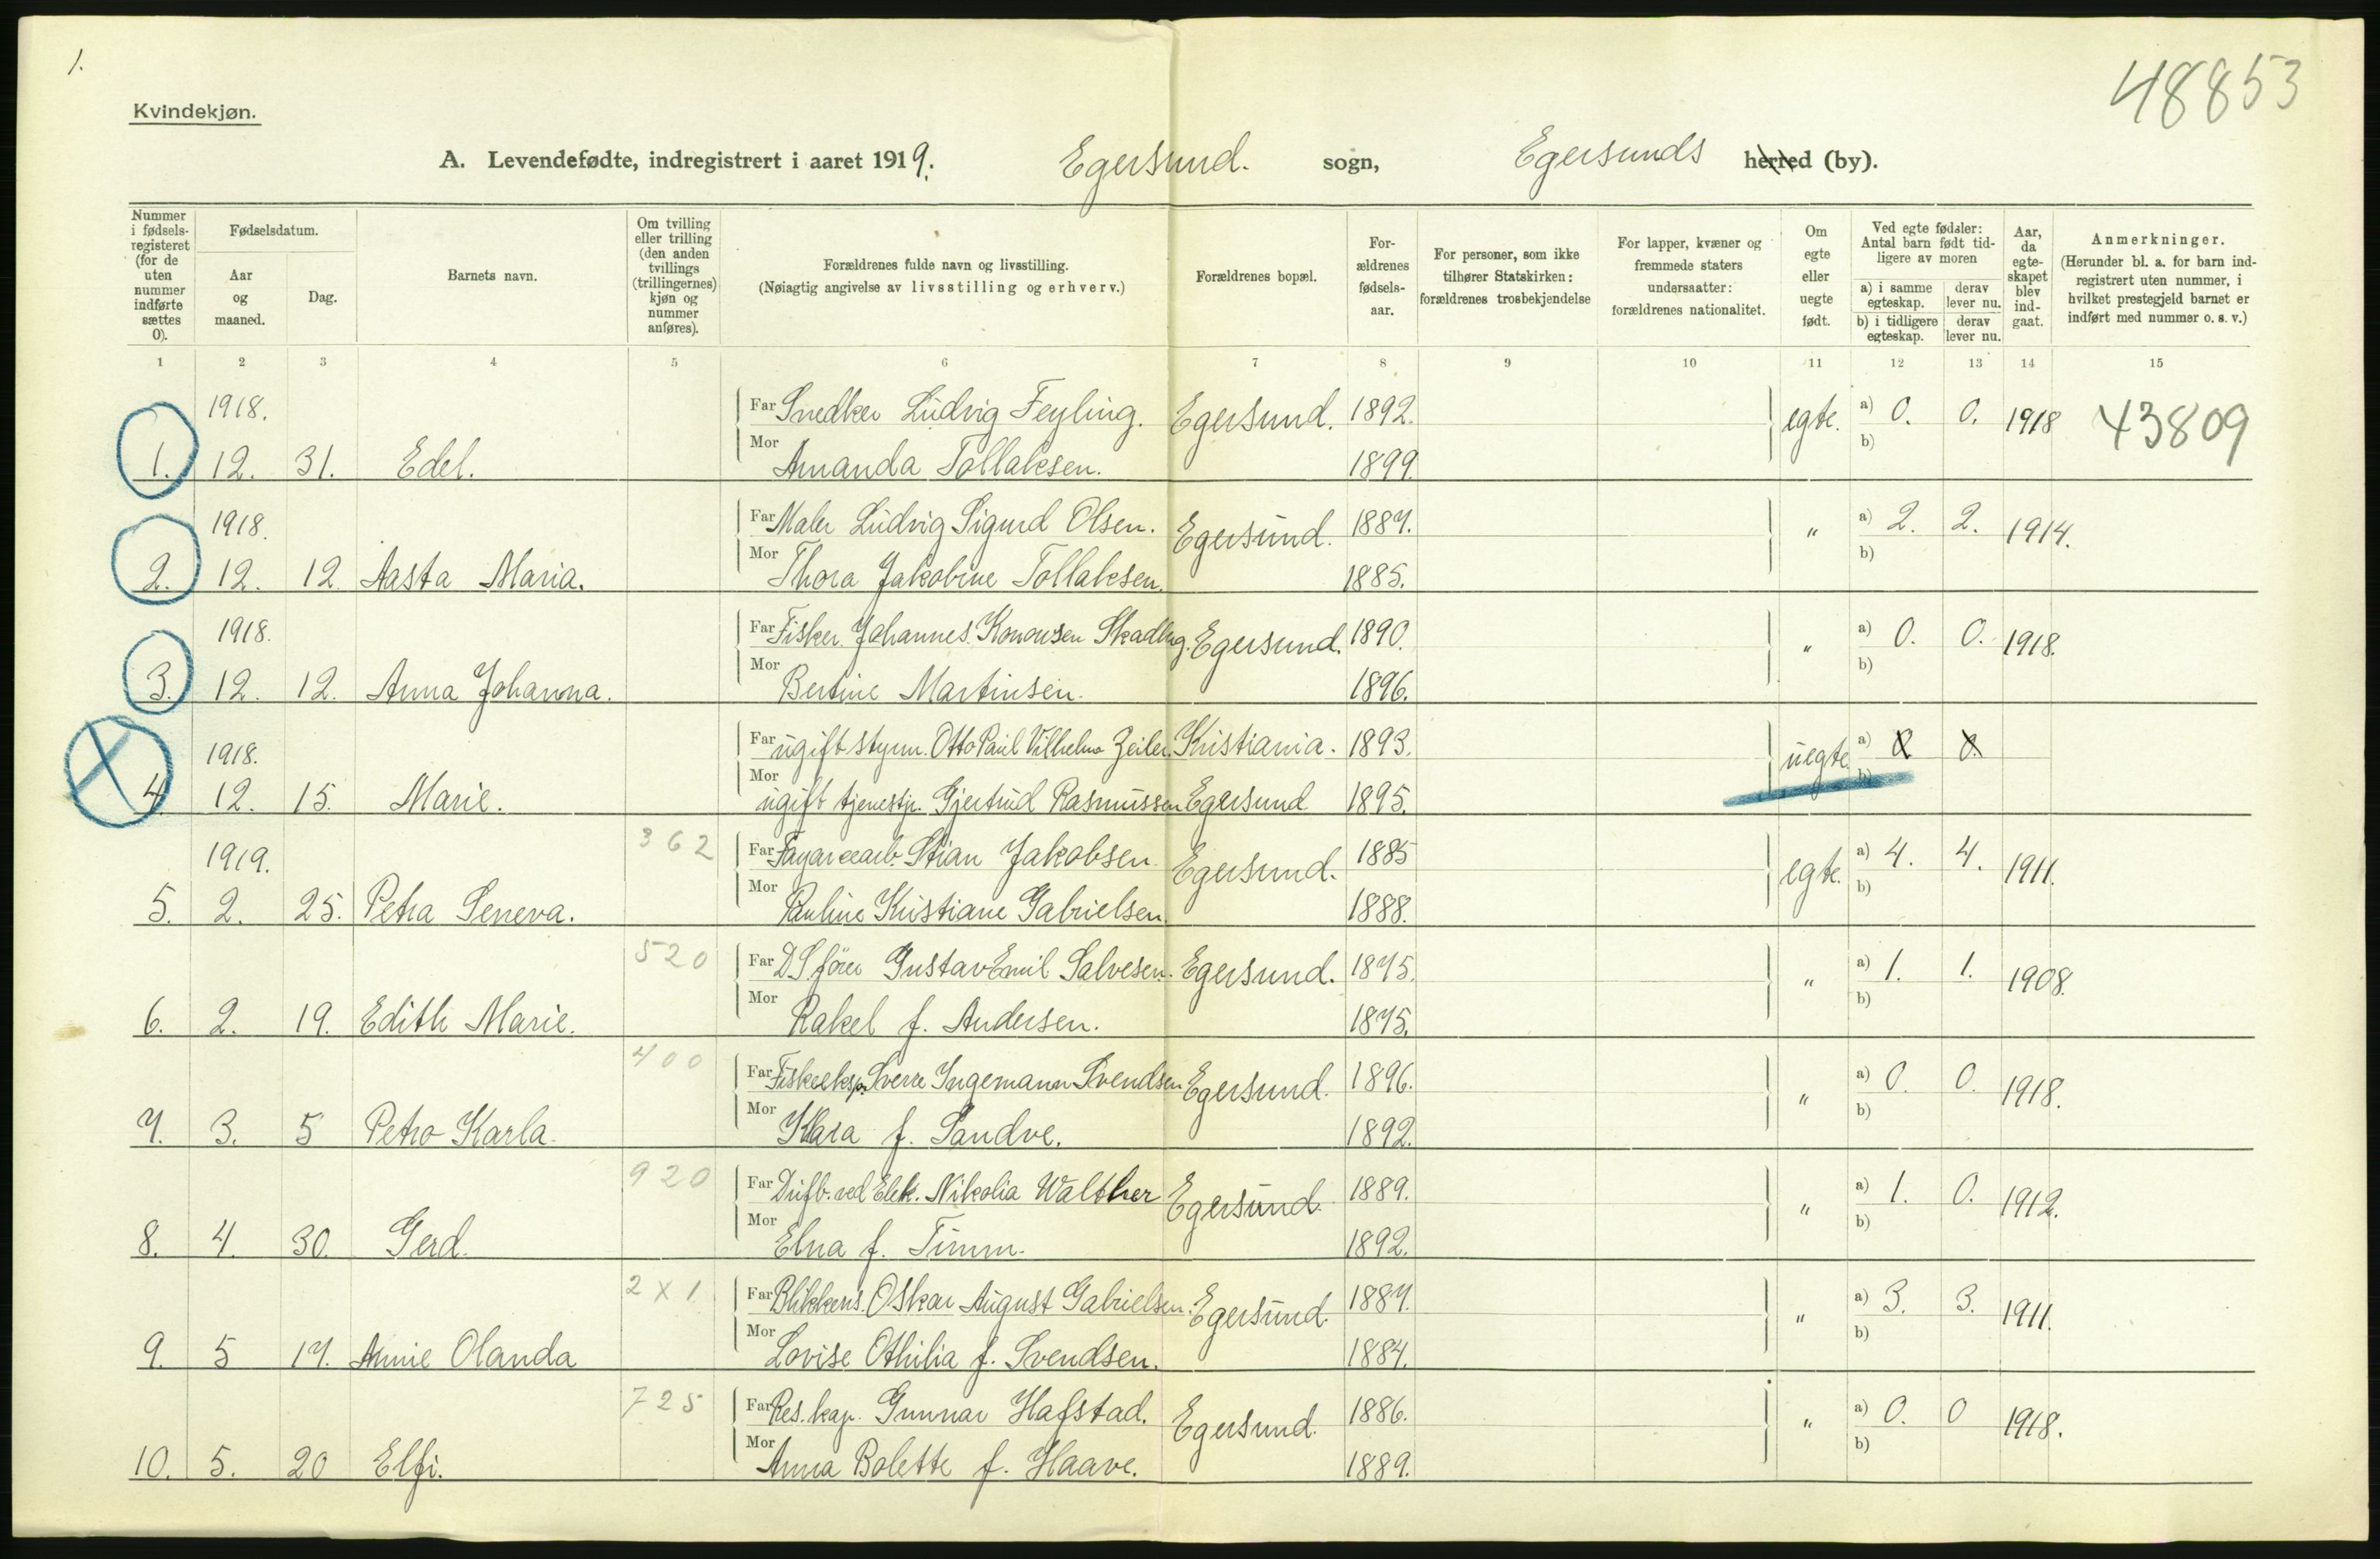 1.
48853
Kvindekjøn.
A. Levendefødte, indregistrert i aaret 1919. Egersund. sogn, Egersunds herred (by).
Nummer i fødsels-registeret (for de uten nummer indførte sættes 0).
Fødselsdatum.
Aar og maaned.
Dag.
Barnets navn.
Om tvilling eller trilling (den anden tvillings (trillingernes) kjøn og nummer anføres).
Forældrenes fulde navn og livsstilling.
(Nøiagtig angivelse av livsstilling og erhverv.)
Forældrenes bopæl.
For-ældrenes fødsels-aar.
For personer, som ikke tilhører Statskirken: forældrenes trosbekjendelse
For lapper, kvæner og fremmede staters undersaatter: forældrenes nationalitet.
Om egte eller uegte født.
Ved egte fødsler: Antal barn født tid-ligere av moren
a) i samme egteskap. derav lever nu.
b) i tidligere egteskap. derav lever nu.
Aar, da egte-skapet blev ind-gaat.
Anmerkninger.
(Herunder bl. a. for barn ind-registrert uten nummer, i hvilket prestegjeld barnet er indført med nummer o. s. v.)
1 2 3 4 5 6 7 8 9 10 11 12 13 14 15
1918. Far Snedker Ludvig Feyling. Egersund. 1892. egte. a) 0. 0. 1918 43809
1. 12. 31. Edel. Mor Amanda Tollaksen. 1899. b)
1918. Far Maler Ludvig Sigurd Olsen. Egersund. 1887. " a) 2. 2. 1914.
2. 12. 12. Aasta Maria. Mor Thora Jakobine Tollaksen. 1885. b)
1918. Far Fisker Johannes Kornusen Skadbg. Egersund. 1890. " a) 0. 0. 1918.
3. 12. 12. Anna Johanna. Mor Bertine Martinsen. 1896. b)
1918. Far ugift styrm. Otto Paul Vilhelm Zeiler. Kristiania. 1893. uegte. a) 0 0.
4. 12. 15. Marie. Mor ugift tjenestp. Gjertrud Rasmussen Egersund 1895. b)
1919. 362 Far Fayancearb. Stian Jakobsen. Egersund. 1885 egte. a) 4. 4. 1911.
5. 2. 25. Petra Seneva. Mor Pauline Kristiane Gabrielsen. 1888. b)
520 Far DS fører Gustav Emil Salvesen. Egersund. 1875. " a) 1. 1. 1908.
6. 2. 19. Edith Marie. Mor Rakel f. Andersen. 1875. b)
400 Far Fiskeeksp. Sverre Ingemann Svendsen Egersund. 1896. " a) 0. 0. 1918.
7. 3. 5 Petro Karla. Mor Klara f. Sandve. 1892. b)
920 Far Driftb. ved Elek. Nikolia Walther Egersund. 1889. " a) 1. 0. 1912.
8. 4. 30. Gerd. Mor Elna f. Timm. 1892. b)
2 x 1 Far Blikkens. Oskar August Gabrielsen. Egersund. 1887. " a) 3. 3. 1911.
9. 5 17. Annie Olanda Mor Lovise Othilia f. Svendsen. 1884. b)
725 Far Res. kap. Gunnar Hafstad. Egersund. 1886. " a) 0. 0 1918.
10. 5. 20 Elfi. Mor Anna Bolette f. Haave. 1889. b)